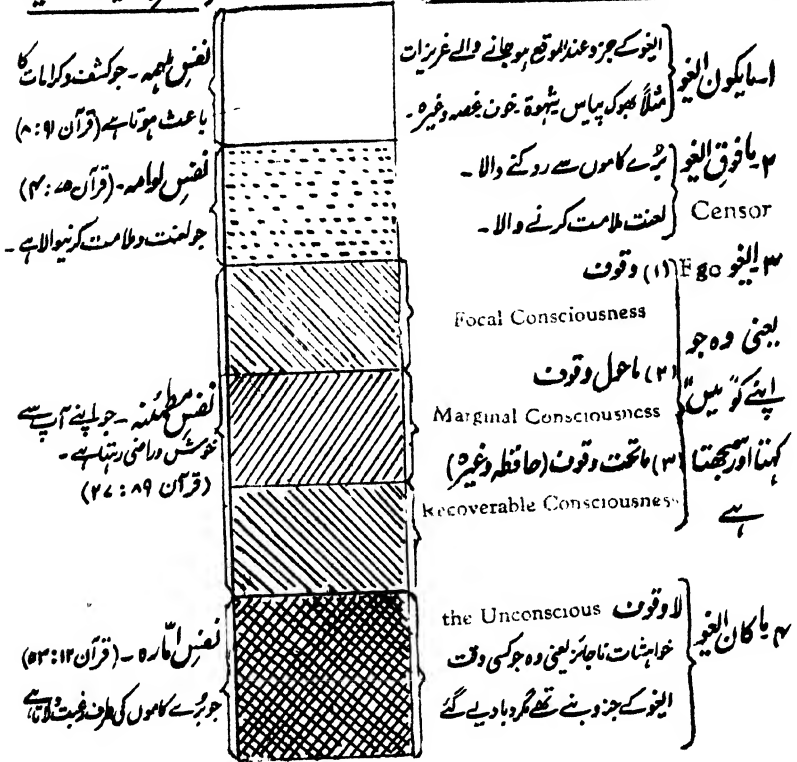 ۱۔ مایکون الیغو
الیغو کے جزو عند الموقع ہو جانے والے غریزات
مثلاً بھوک پیاس شہوۃ خون غصہ وغیرہ۔
۲۔ مافوق الیغو
بُرے کاموں سے روکنے والا۔
Censor
لعنت ملامت کرنے والا۔
۳ الیغو Ego
یعنی وہ جو
اپنے کو "میں"
کہتا اور سمجھتا
ہے
(۱) وقوف
Focal Consciousness
(۲) ماحول وقوف
Marginal Consciousness
(۳) ماتحت وقوف (حافظہ وغیرہ)
Recoverable Consciousness
۴ ماکان الیغو
لاوقوف the Unconscious
خواہشات ناجائز یعنی وہ جو کسی وقت
الیغو کے جزو بنے تھے مگر دبا دیے گئے
نفس ملہمہ۔ جو کشف و کرامات کا
باعث ہوتا ہے (قرآن ۹۱ : ۸)
نفس لوامہ۔ (قرآن ۷۵ : ۲)
جو لعنت و ملامت کرنیوالا ہے۔
نفس مطمئنہ۔ جو اپنے آپ سے
خوش و راضی رہتا ہے۔
(قرآن ۸۹ : ۲۷)
نفس امّارہ۔ (قرآن ۱۲ : ۵۳)
جو بُرے کاموں کی طرف رغبت دلاتا ہے